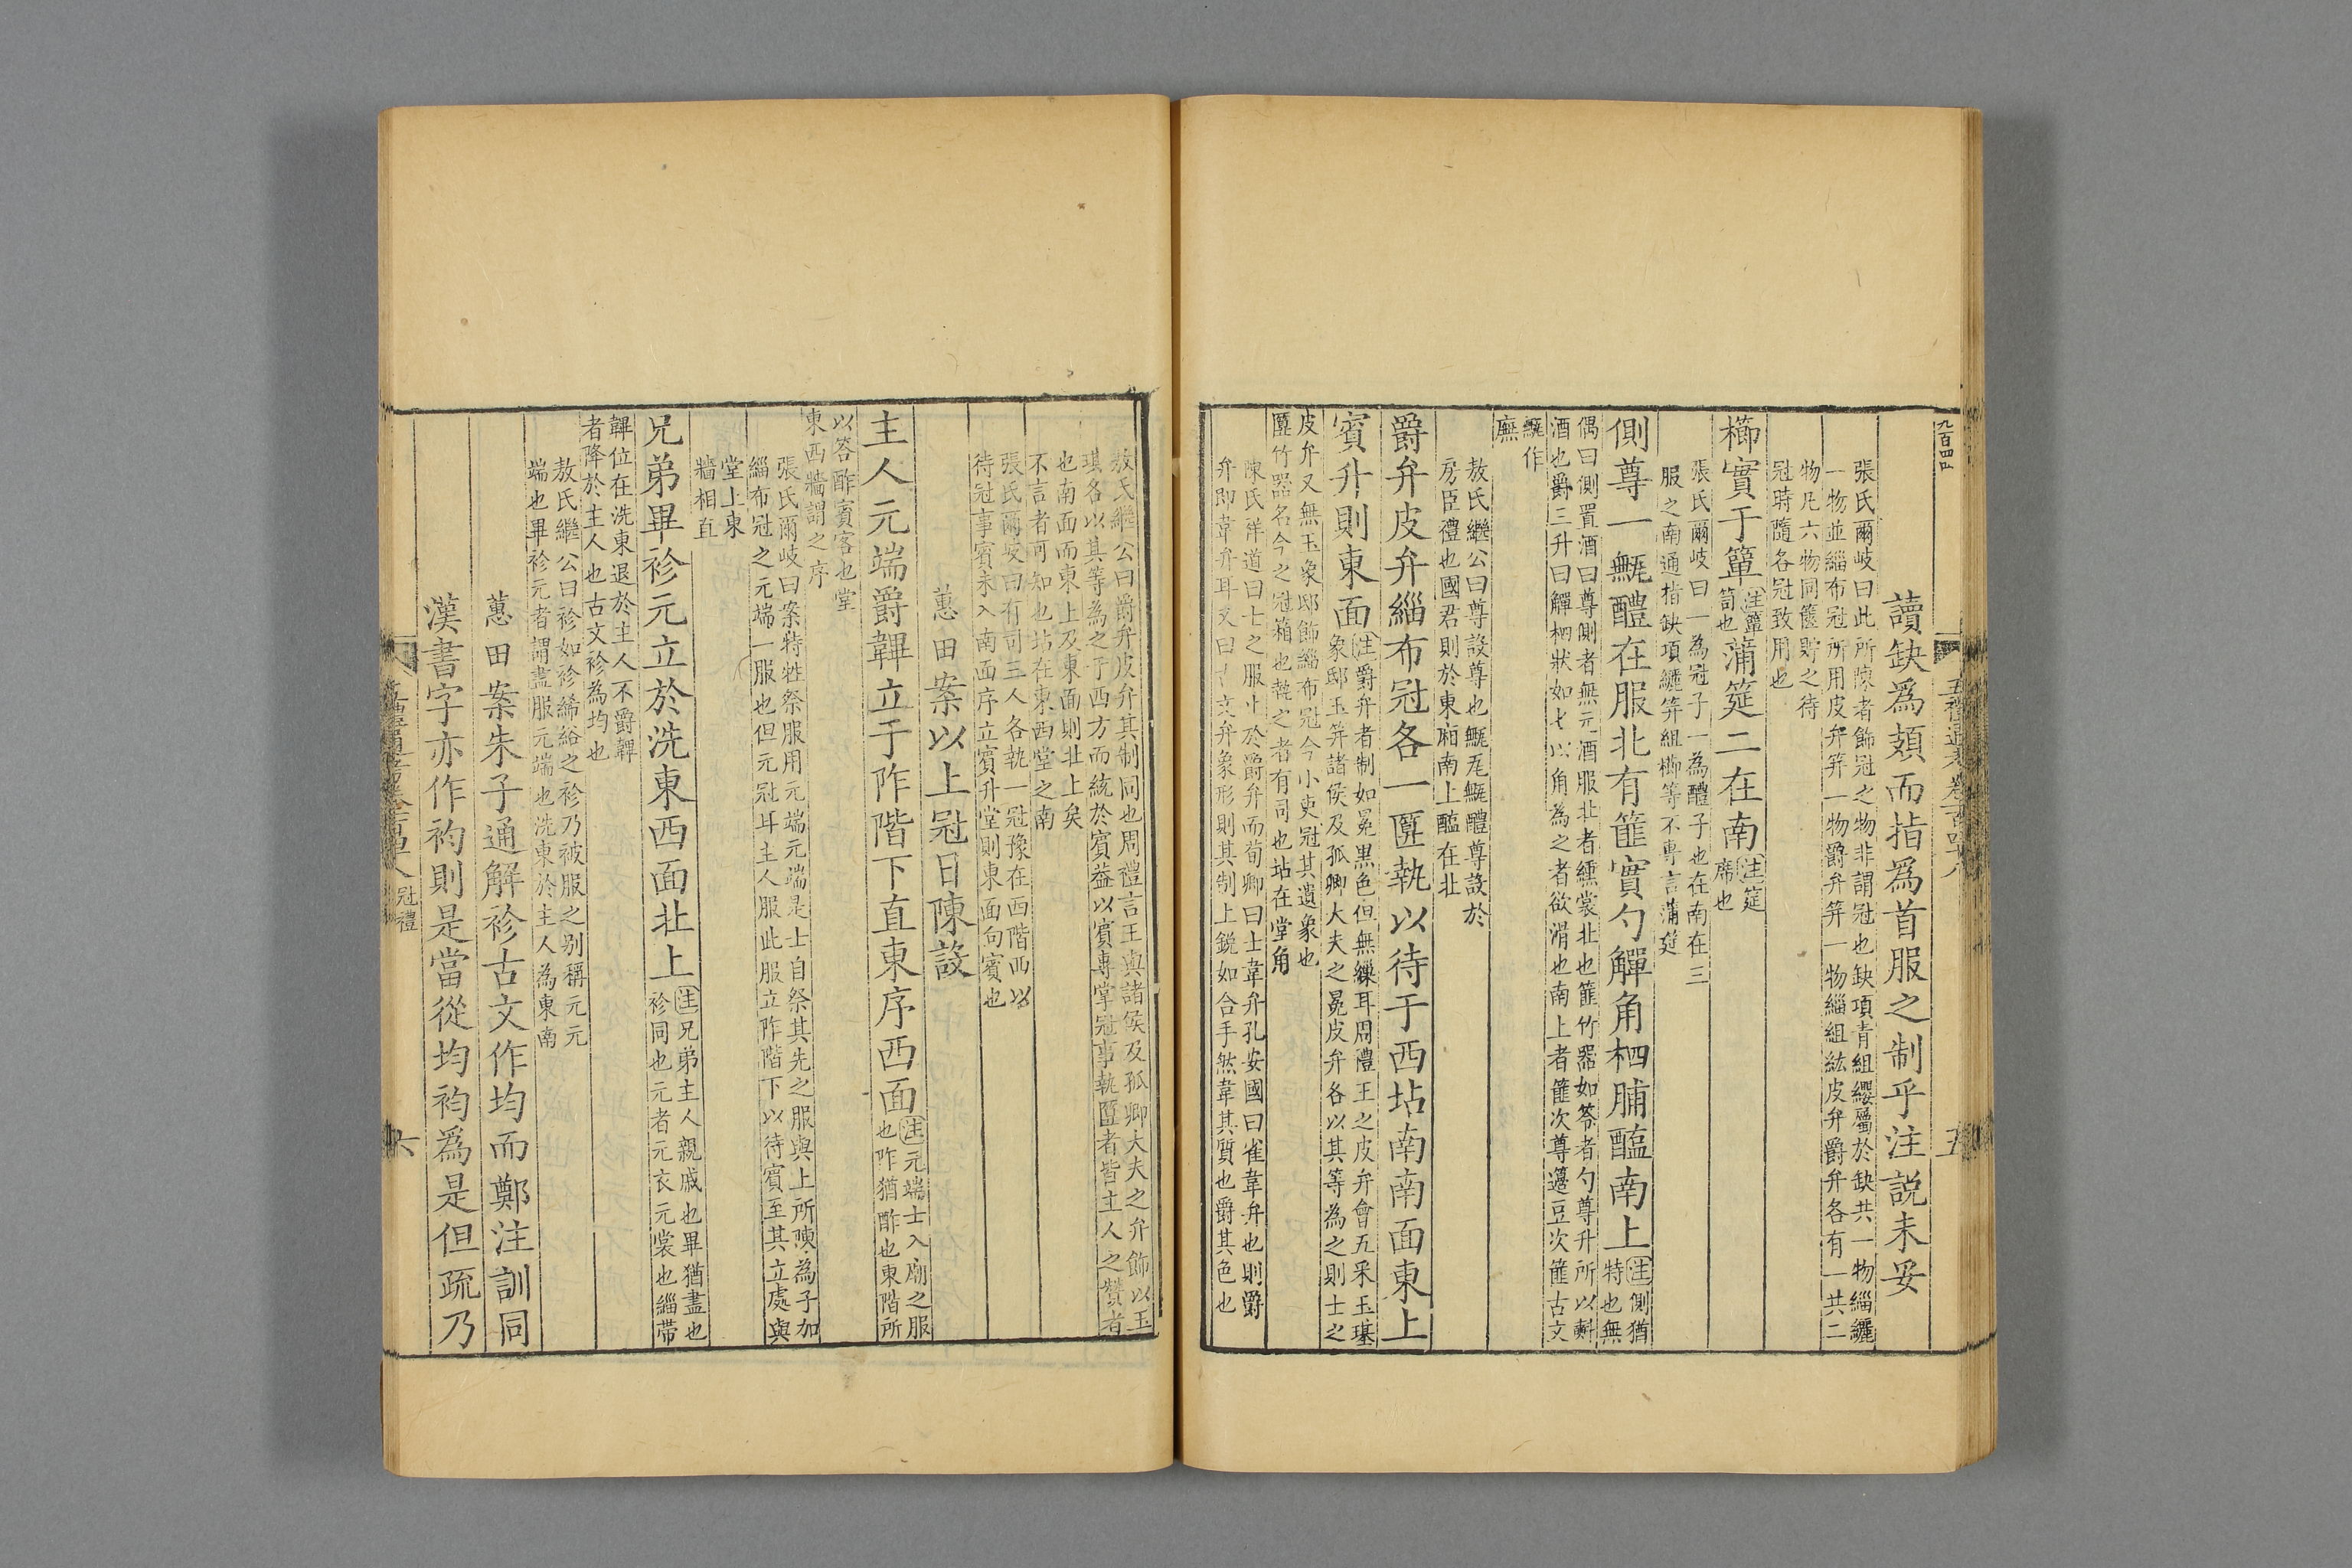 九百四四
五禮通考卷一百四十八
五
讀缺爲頍而指爲首服之制乎注説未妥
張氏爾岐曰此所陳者飾冠之物非謂冠也缺項青組纓屬於缺共一物緇纚
一物並緇布冠所用皮弁笄一物爵弁笄一物緇組紘皮弁爵弁各有一共二
物凡六物同篋貯之待
冠時隨各冠致用也
櫛實于簞注簞
笥也蒲筵二在南注筵
席也
張氏爾岐曰一為冠子一為醴子也在南在三
服之南通指缺項纚笄組櫛等不專言蒲筵
側尊一甒醴在服北有篚實勺觶角柶脯醢南上注側猶
特也無
偶曰側置酒曰尊側者無元酒服北者纁裳北也篚竹器如笭者勺尊升所以㪺
酒也爵三升曰觶柶狀如匕以角為之者欲滑也南上者篚次尊籩豆次篚古文
甒作
廡
敖氏繼公曰尊設尊也甒瓦甒醴尊設於
房臣禮也國君則於東廂南上醢在北
爵弁皮弁緇布冠各一匴執以待于西坫南南面東上
賓升則東面注爵弁者制如冕黑色但無繅耳周禮王之皮弁會五采玉璂
象邸玉笄諸侯及孤卿大夫之冕皮弁各以其等為之則士之
皮弁又無玉象邸飾緇布冠今小吏冠其遺象也
匴竹器名今之冠箱也執之者有司也坫在堂角
陳氏祥道曰士之服止於爵弁而荀卿曰士韋弁孔安國曰雀韋弁也則爵
弁即韋弁耳又曰古文弁象形則其制上銳如合手然韋其質也爵其色也
敖氏繼公曰爵弁皮弁其制同也周禮言王與諸侯及孤卿大夫之弁飾以玉
琪各以其等為之于西方而統於賓益以賓專掌冠事執匴者皆主人之贊者
也南面而東上及東面則北上矣
不言者可知也坫在東西堂之南
張氏爾岐曰有司三人各執一冠豫在西階西以
待冠事賓未入南面序立賓升堂則東面向賓也
蕙田案以上冠日陳設
主人元端爵韠立于阼階下直東序西面注元端士入廟之服
也阼猶酢也東階所
以答酢賓客也堂
東西牆謂之序
張氏爾岐曰案特牲祭服用元端元端是士自祭其先之服與上所陳為子加
緇布冠之元端一服也但元冠耳主人服此服立阼階下以待賓至其立處與
堂上東
牆相直
兄弟畢袗元立於洗東西面北上注兄弟主人親戚也畢猶盡也
袗同也元者元衣元裳也緇帶
韠位在洗東退於主人不爵韠
者降於主人也古文袗為均也
敖氏繼公曰袗如袗絺綌之袗乃被服之别稱元元
端也畢袗元者謂盡服元端也洗東於主人為東南
蕙田案朱子通解袗古文作均而鄭注訓同
漢書字亦作袀則是當從均袀爲是但疏乃
冠禮
六